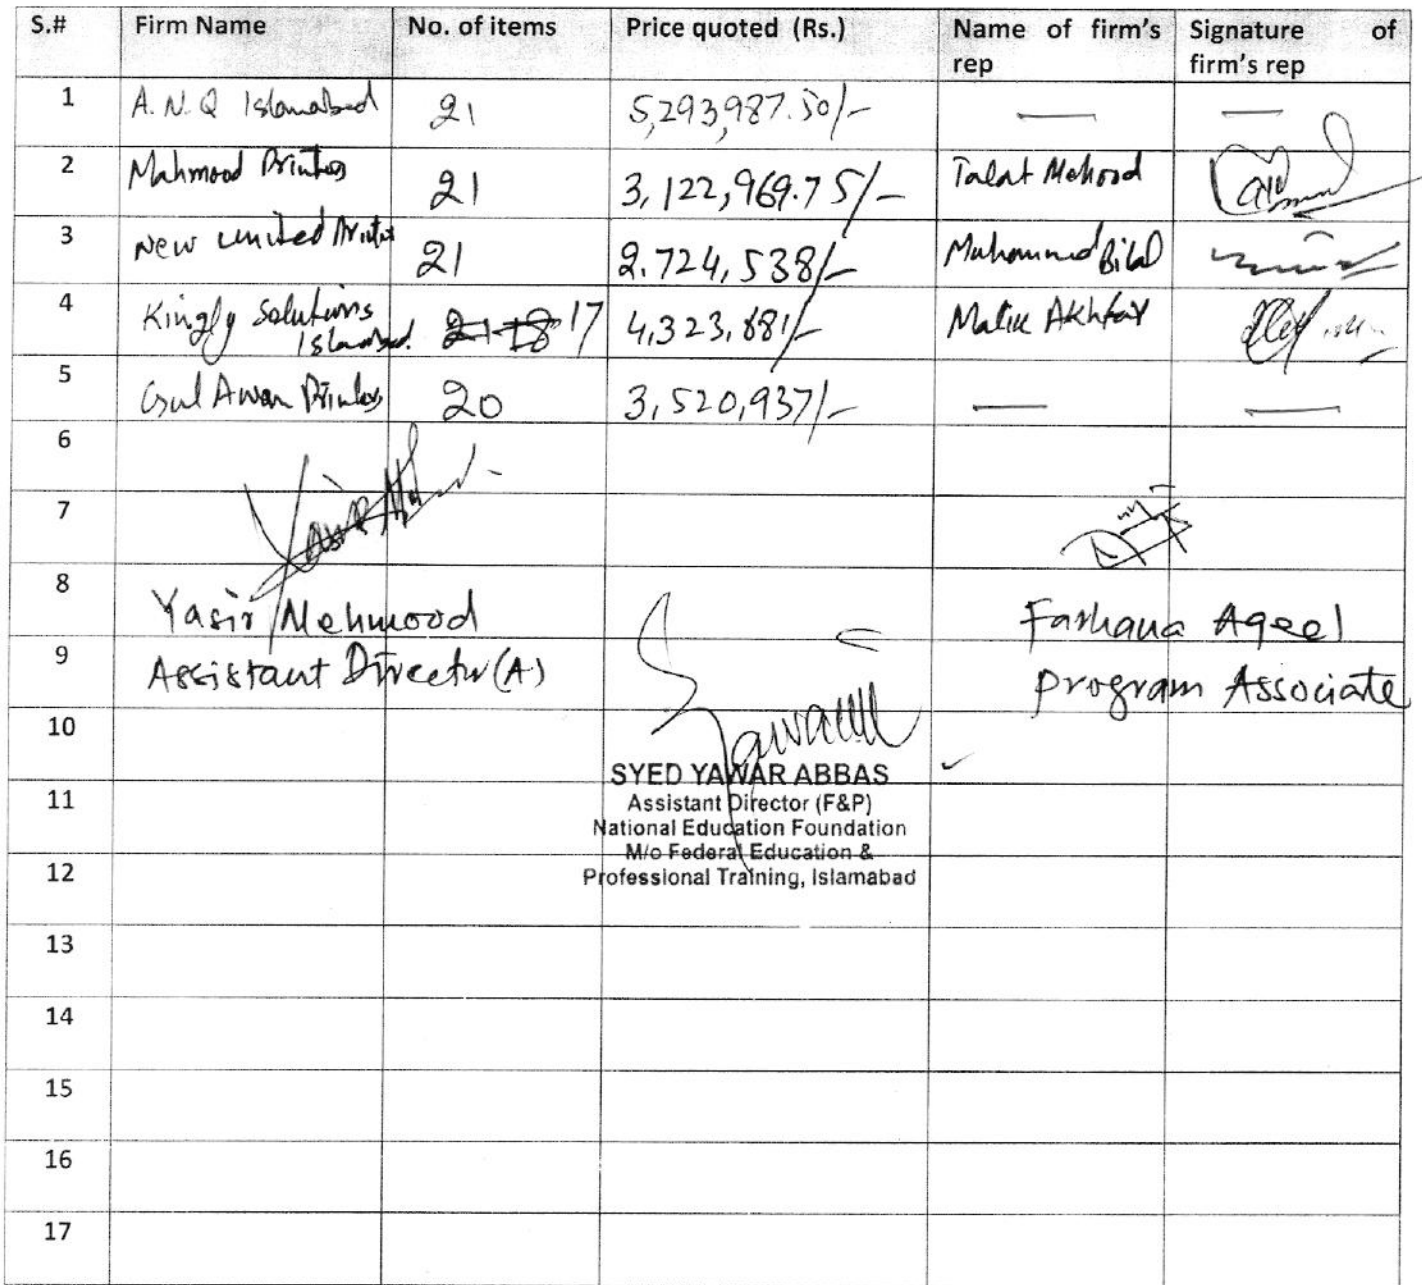 S.# Firm Name No. of items Price quoted (Rs.) Name of firm's rep Signature of firm's rep
1 A.N.Q Islamabad 21 5,293,987.50/- — —
2 Mahmood Printers 21 3,122,969.75/- Talat Mehood
3 New United Printer 21 2.724,538/- Muhammad Bilal
4 Kingly Solutions Islamabad. 21 18 17 4,323,881/- Malik Akhtar
5 Gul Awan Printers 20 3,520,937/- — —
6
7
8
Yasir Mehmood Farhana Aqeel
9
Assistant Director (A) Program Associate
10
SYED YAWAR ABBAS
11
Assistant Director (F&P)
National Education Foundation
M/o Federal Education &
12
Professional Training, Islamabad
13
14
15
16
17